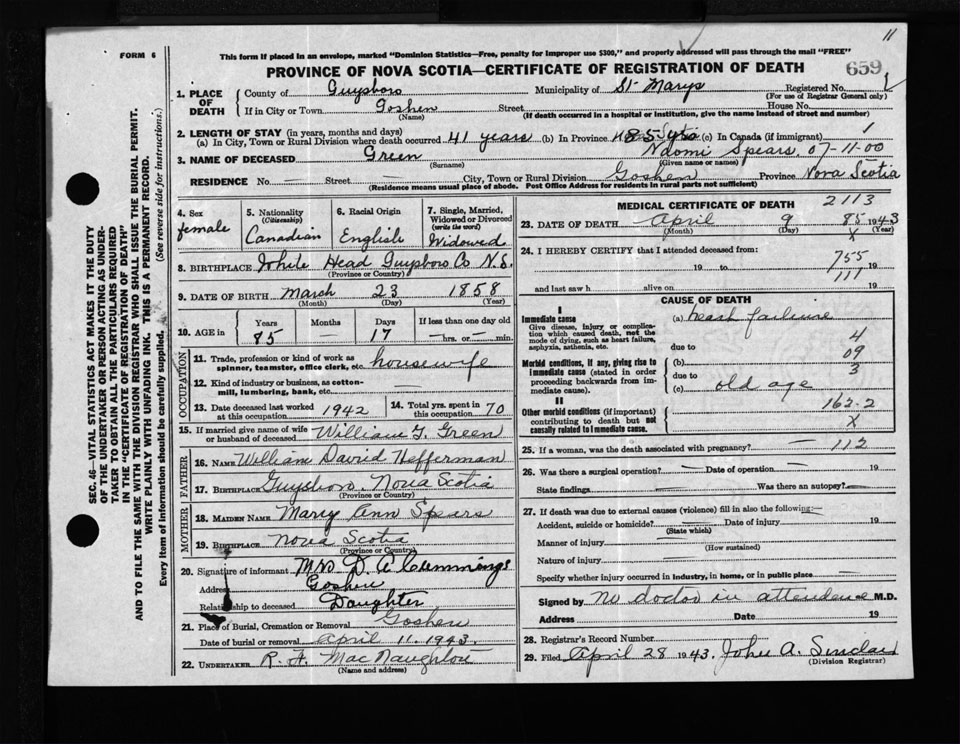 11
FORM 6
This form if placed in an envelope, marked "Dominion Statistics—Free, penalty for improper use $300," and properly addressed will pass through the mail "FREE"
PROVINCE OF NOVA SCOTIA—CERTIFICATE OF REGISTRATION OF DEATH
659
1. PLACE OF DEATH
County of Guysboro Municipality of St Marys Registered No.
(For use of Registrar General only)
If in City or Town Goshen Street House No.
(Name) (If death occurred in a hospital or institution, give the name instead of street and number)
2. LENGTH OF STAY (in years, months and days)
(a) In City, Town or Rural Division where death occurred 41 years (b) In Province 85 yrs (c) In Canada (if immigrant) 1
3. NAME OF DECEASED Green Naomi Spears 07-11-00
(Surname) (Given name or names)
RESIDENCE No. — Street — City, Town or Rural Division Goshen Province Nova Scotia
(Residence means usual place of abode. Post Office Address for residents in rural parts not sufficient)
4. Sex female
5. Nationality (Citizenship) Canadian
6. Racial Origin English
7. Single, Married, Widowed or Divorced (write the word) Widowed
8. BIRTHPLACE White Head Guysboro Co N.S.
(Province or Country)
9. DATE OF BIRTH March 23 1858
(Month) (Day) (Year)
10. AGE in Years 85 Months — Days 17 If less than one day old — hrs. or — min.
OCCUPATION
11. Trade, profession or kind of work as spinner, teamster, office clerk, etc. housewife
12. Kind of industry or business, as cotton-mill, lumbering, bank, etc. —
13. Date deceased last worked at this occupation 1942
14. Total yrs. spent in this occupation 70
15. If married give name of wife or husband of deceased William G. Green
FATHER
16. NAME William David Hefferman
17. BIRTHPLACE Guysboro, Nova Scotia
(Province or Country)
MOTHER
18. MAIDEN NAME Mary Ann Spears
19. BIRTHPLACE Nova Scotia
(Province or Country)
20. Signature of informant Mrs D. A Cummings
Address Goshen
Relationship to deceased Daughter
21. Place of Burial, Cremation or Removal Goshen
Date of burial or removal April 11. 1943.
22. UNDERTAKER R. A. MacNaughton
(Name and address)
MEDICAL CERTIFICATE OF DEATH 2113
23. DATE OF DEATH April 9 85 1943
(Month) (Day) X (Year)
24. I HEREBY CERTIFY that I attended deceased from:
19 to 755 19
and last saw h alive on 111 19
CAUSE OF DEATH
Immediate cause
Give disease, injury or complication which caused death, not the mode of dying, such as heart failure, asphyxia, asthenia, etc.
(a) heart failure
due to 4
Morbid conditions, if any, giving rise to immediate cause (stated in order proceeding backwards from immediate cause)
(b) 09
due to 3
(c) old age
II
Other morbid conditions (if important) contributing to death but not causally related to immediate cause.
162-2
X
25. If a woman, was the death associated with pregnancy? — 112
26. Was there a surgical operation? — Date of operation — 19
State findings Was there an autopsy? —
27. If death was due to external causes (violence) fill in also the following: —
Accident, suicide or homicide? Date of injury 19
(State which)
Manner of injury
(How sustained)
Nature of injury —
Specify whether injury occurred in industry, in home, or in public place —
Signed by no doctor in attendence M.D.
Address Date 19
28. Registrar's Record Number
29. Filed April 28 1943. John A. Sinclair
(Division Registrar)
SEC. 46—VITAL STATISTICS ACT MAKES IT THE DUTY
OF THE UNDERTAKER OR PERSON ACTING AS UNDER-
TAKER TO OBTAIN ALL THE PARTICULARS REQUIRED
IN THE "CERTIFICATE OF REGISTRATION OF DEATH"
AND TO FILE THE SAME WITH THE DIVISION REGISTRAR WHO SHALL ISSUE THE BURIAL PERMIT.
WRITE PLAINLY WITH UNFADING INK. THIS IS A PERMANENT RECORD.
Every item of information should be carefully supplied. (See reverse side for instructions.)